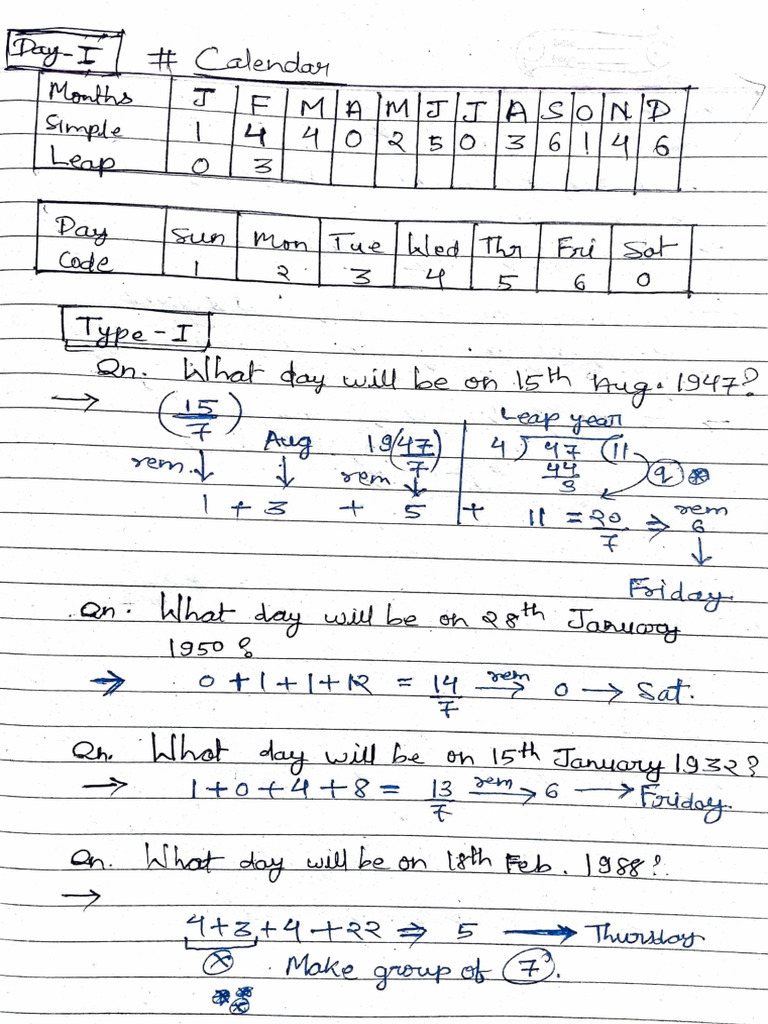 Day-I # Calendar
Months J F M A M J J A S O N D
Simple 1 4 4 0 2 5 0 3 6 1 4 6
Leap 0 3
Day Sun Mon Tue Wed Thr Fri Sat
Code 1 2 3 4 5 6 0
Type-I
Qn. What day will be on 15th Aug. 1947?
→ (15/7) Aug 19(47/7) Leap year 4) 47 (11
rem. ↓ ↓ rem ↓ 44 q
3
1 + 3 + 5 + 11 = 20/7 ⇒ rem 6
↓
Friday.
Qn. What day will be on 28th January
1950?
→ 0 + 1 + 1 + 12 = 14/7 rem → 0 → Sat.
Qn. What day will be on 15th January 1932?
→ 1 + 0 + 4 + 8 = 13/7 rem → 6 → Friday.
Qn. What day will be on 18th Feb. 1988?
→
4+3+4+22 ⇒ 5 → Thursday
x Make group of 7.